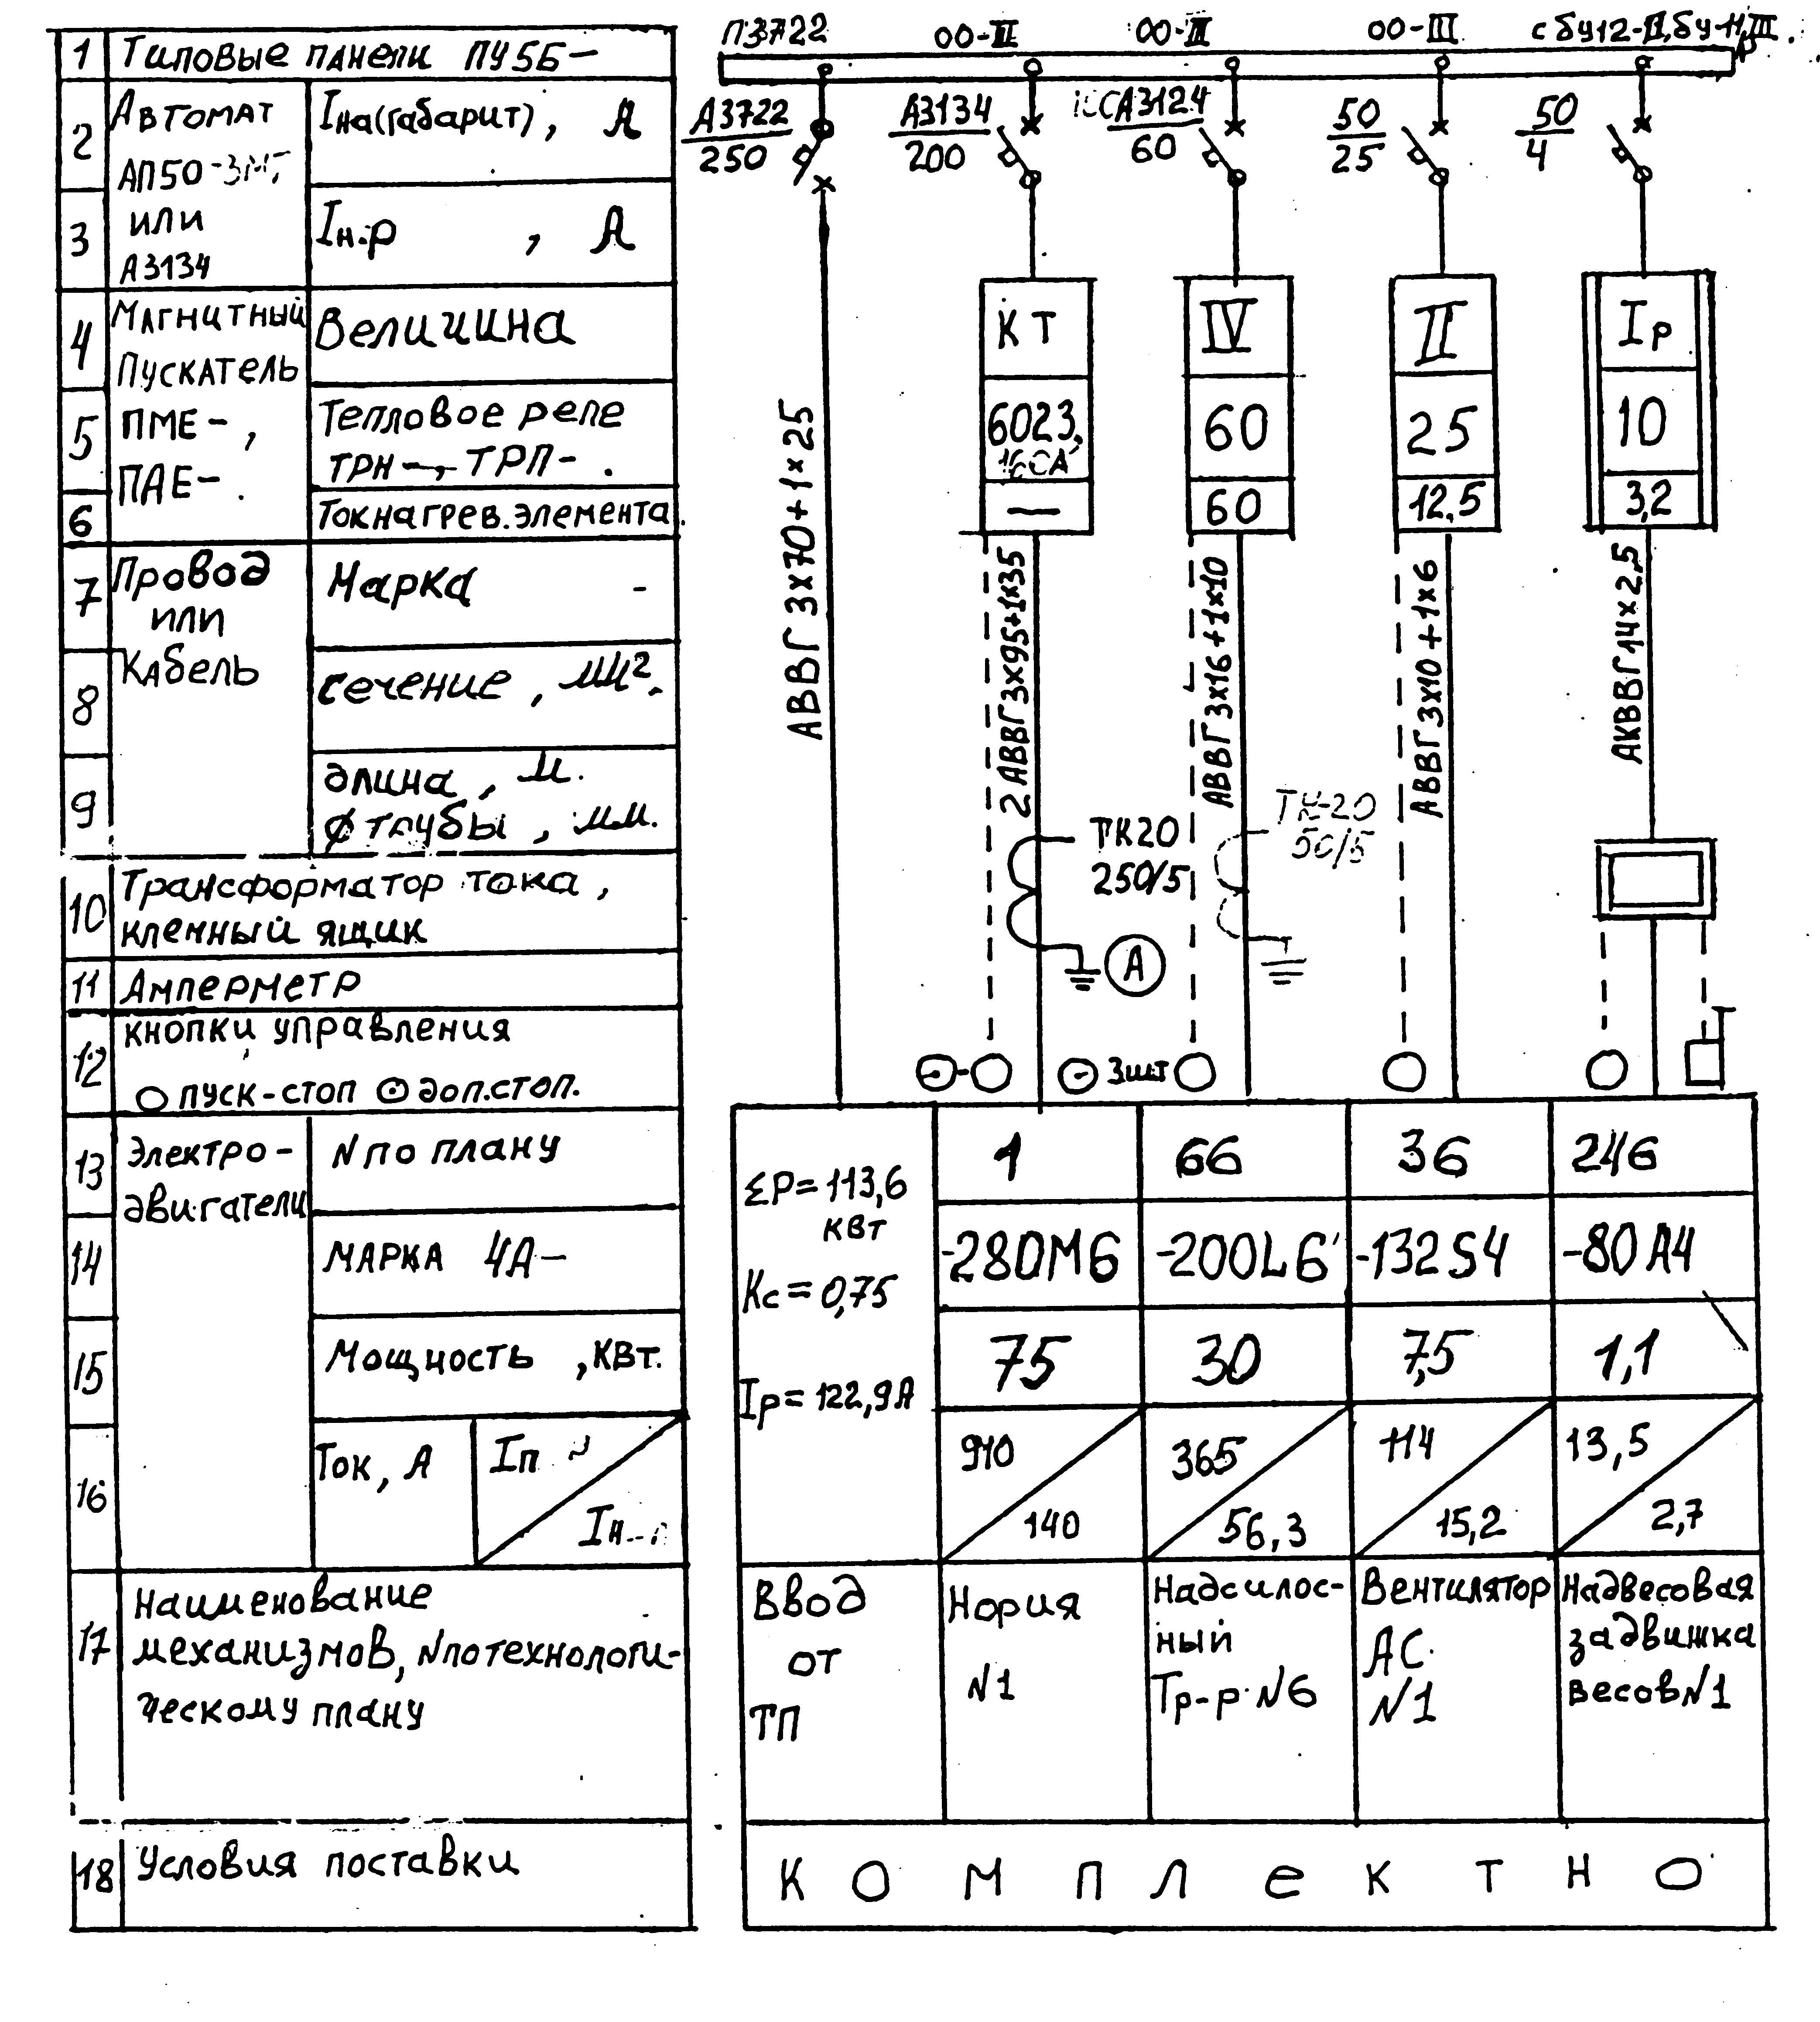 1 Типовые панели ПУ5Б-
2 Автомат Iна(габарит), А
АП50-3МТ
или
3 Iн.р , А
А3134
4 Магнитный Величина
Пускатель
5 ПМЕ-, Тепловое реле
ТРН-, ТРП- .
ПАЕ- .
6 Ток нагрев. элемента.
7 Провод Марка -
или
Кабель
8 сечение, мм².
9 длина, м.
Ø трубы, мм.
10 Трансформатор тока,
клемный ящик
11 Амперметр
12 кнопки управления
пуск-стоп доп.стоп.
13 Электро- N по плану
двигатели
14 МАРКА 4А-
15 Мощность, КВт.
16 Ток, А Iп
Iн
17 Наименование
механизмов, N по технологи-
ческому плану
18 Условия поставки
П3722 00-II 00-II 00-III с бу12-II, бу-11, III
А3722 А3134 А3124 50 50
250 200 60 25 4
КТ IV II Iр
6023, 60 25 10
160А
— 60 12,5 3,2
АВВГ 3×70+1×25
2 АВВГ 3×95+1×35
АВВГ 3×16+1×10
АВВГ 3×10+1×6
АКВВГ 14×2,5
ТК20
250/5
А
ТК-20
50/5
3шт
ΣР=113,6
КВт
Кс=0,75
Iр=122,9А
1 66 36 246
-280М6 -200L6 -132S4 -80А4
75 30 7,5 1,1
910 365 114 13,5
140 56,3 15,2 2,7
Ввод
от
ТП
Нория
N1
Надсилос-
ный
Тр-р N6
Вентилятор
АС.
N1
Надвесовая
задвижка
весов N1
Комплектно